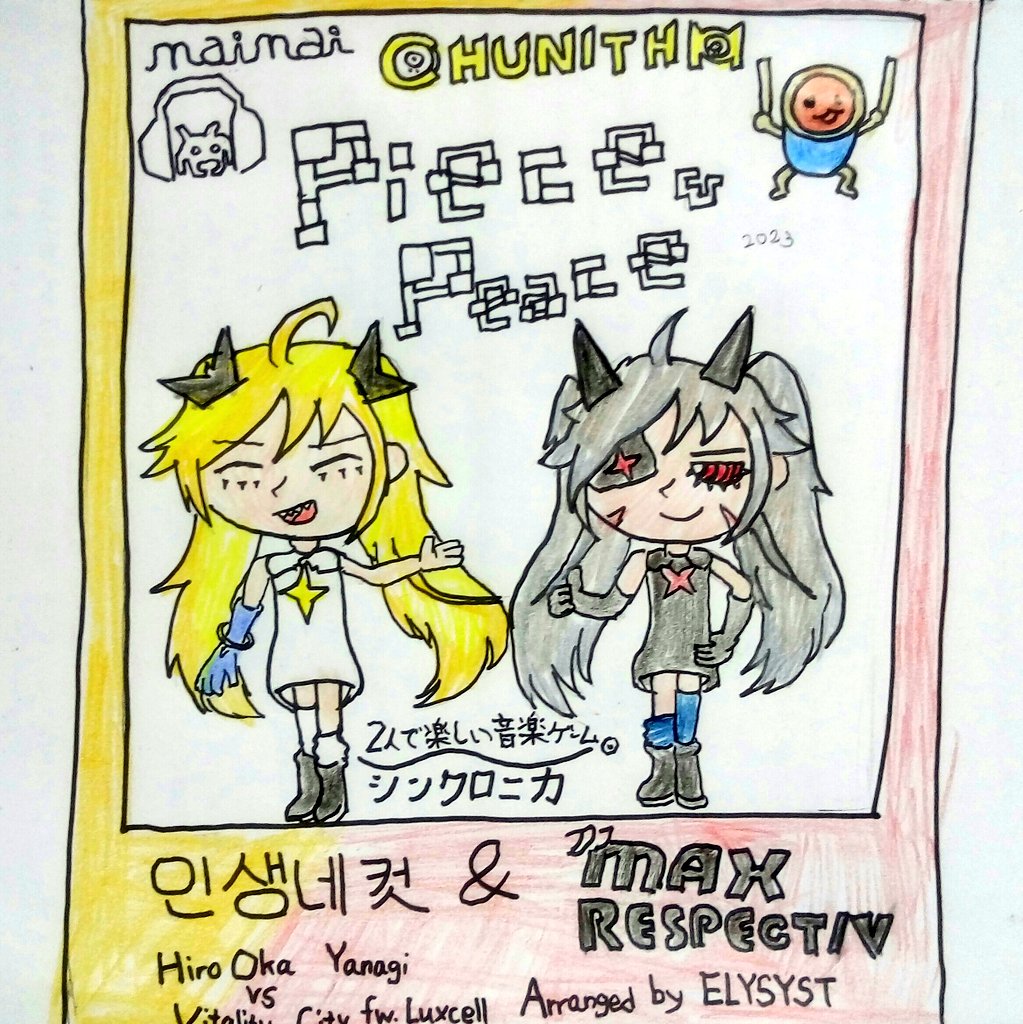 maimai CHUNITHM
Piece
Peace
2023
2人で楽しい音楽ゲーム。
シンクロニカ
인생네컷 & DJ MAX
RESPECT/V
Hiro Oka Yanagi
vs
Vitality City fw. Luxcell
Arranged by ELYSYST